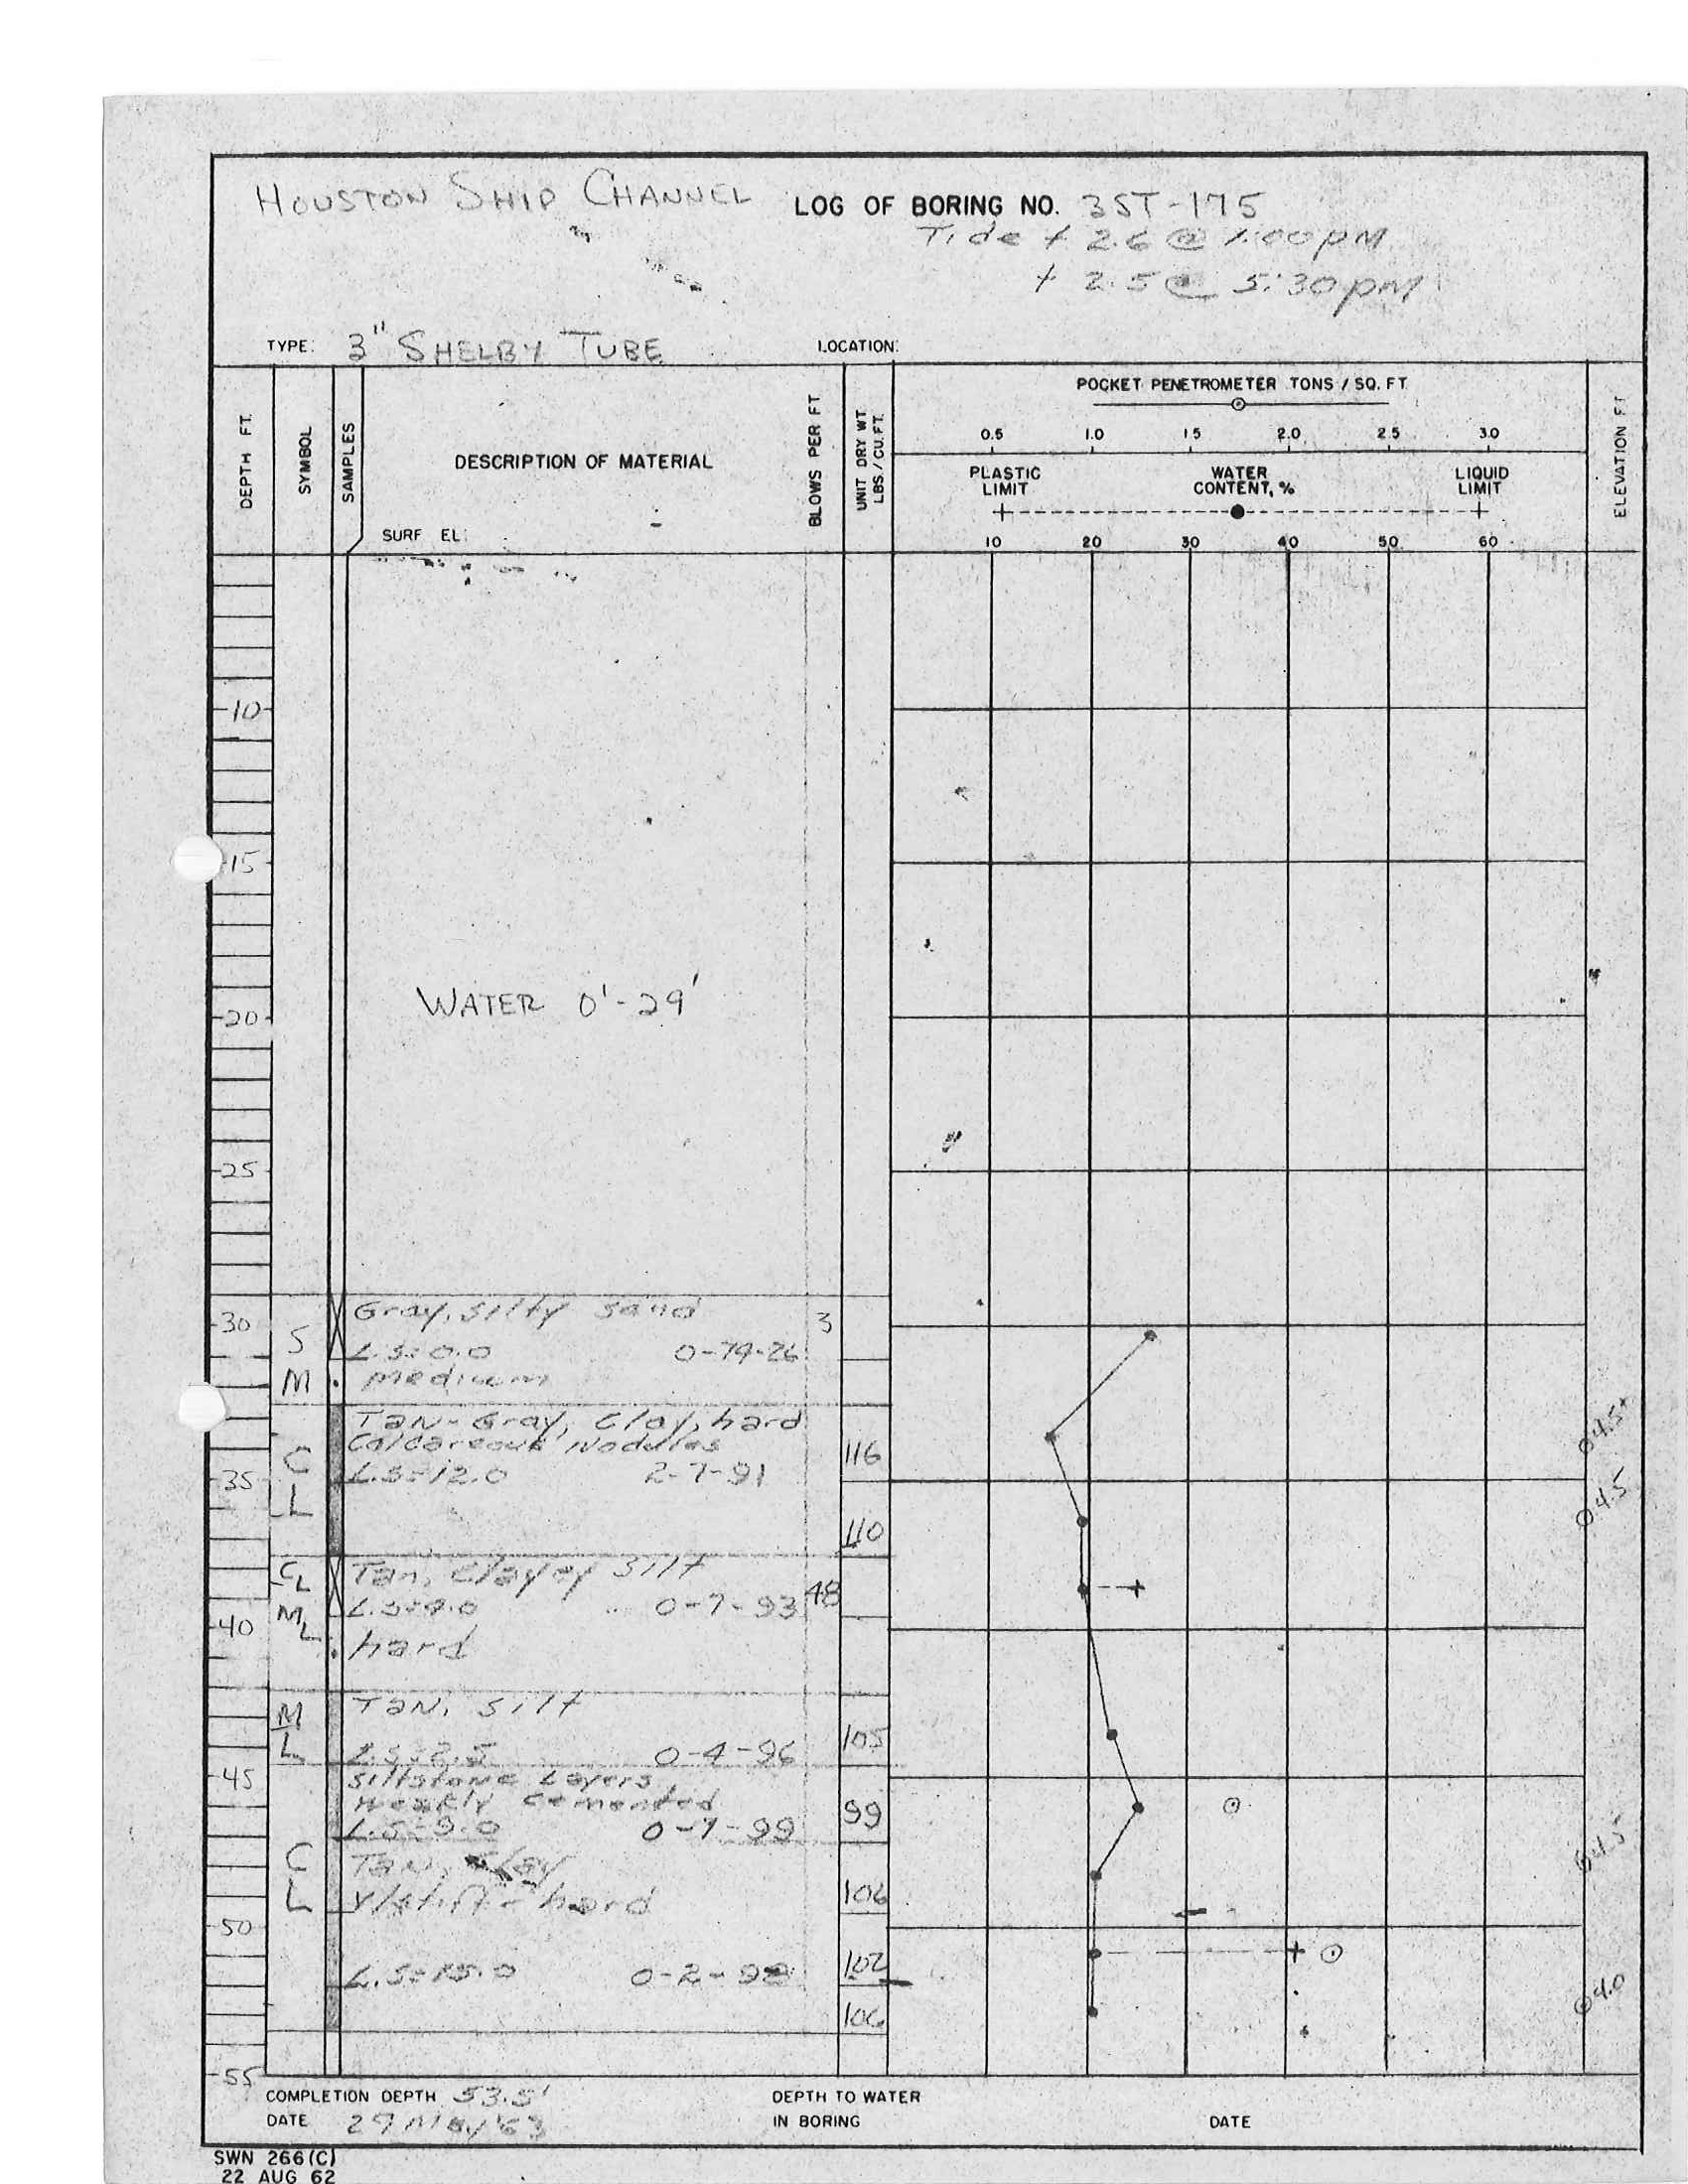 HOUSTON SHIP CHANNEL LOG OF BORING NO. 3ST-175
Tide + 2.6 @ 1:00 PM
+ 2.5 @ 5:30 PM
TYPE: 3" SHELBY TUBE LOCATION:
DEPTH FT.
SYMBOL
SAMPLES
DESCRIPTION OF MATERIAL
SURF EL:
BLOWS PER FT
UNIT DRY WT
LBS./CU.FT.
POCKET PENETROMETER TONS / SQ. FT
0.5 1.0 1.5 2.0 2.5 3.0
PLASTIC LIMIT
WATER CONTENT, %
LIQUID LIMIT
10 20 30 40 50 60
ELEVATION FT
10
15
WATER 0'-29'
20
25
Gray, silty sand
30 S 3
L.S.=0.0 0-74-26
M medium
Tan-Gray, Clay, hard
Calcareous Nodules
C 116 4.5+
35 L.S=12.0 2-7-91
L 4.5
110
CL Tan, Clayey Silt
48
ML L.S=9.0 0-7-93
40 hard
M TAN, Silt
105
L L.S=2.5 0-4-96
45 Siltstone Layers,
Weakly cemented
99
L.S=9.0 0-1-99
C Tan, Clay 4.5
L v/stiff-hard 106
50
102
L.S=15.0 0-2-98
4.0
106
55
COMPLETION DEPTH 53.5' DEPTH TO WATER
DATE 29 May '63 IN BORING DATE
SWN 266(C)
22 AUG 62